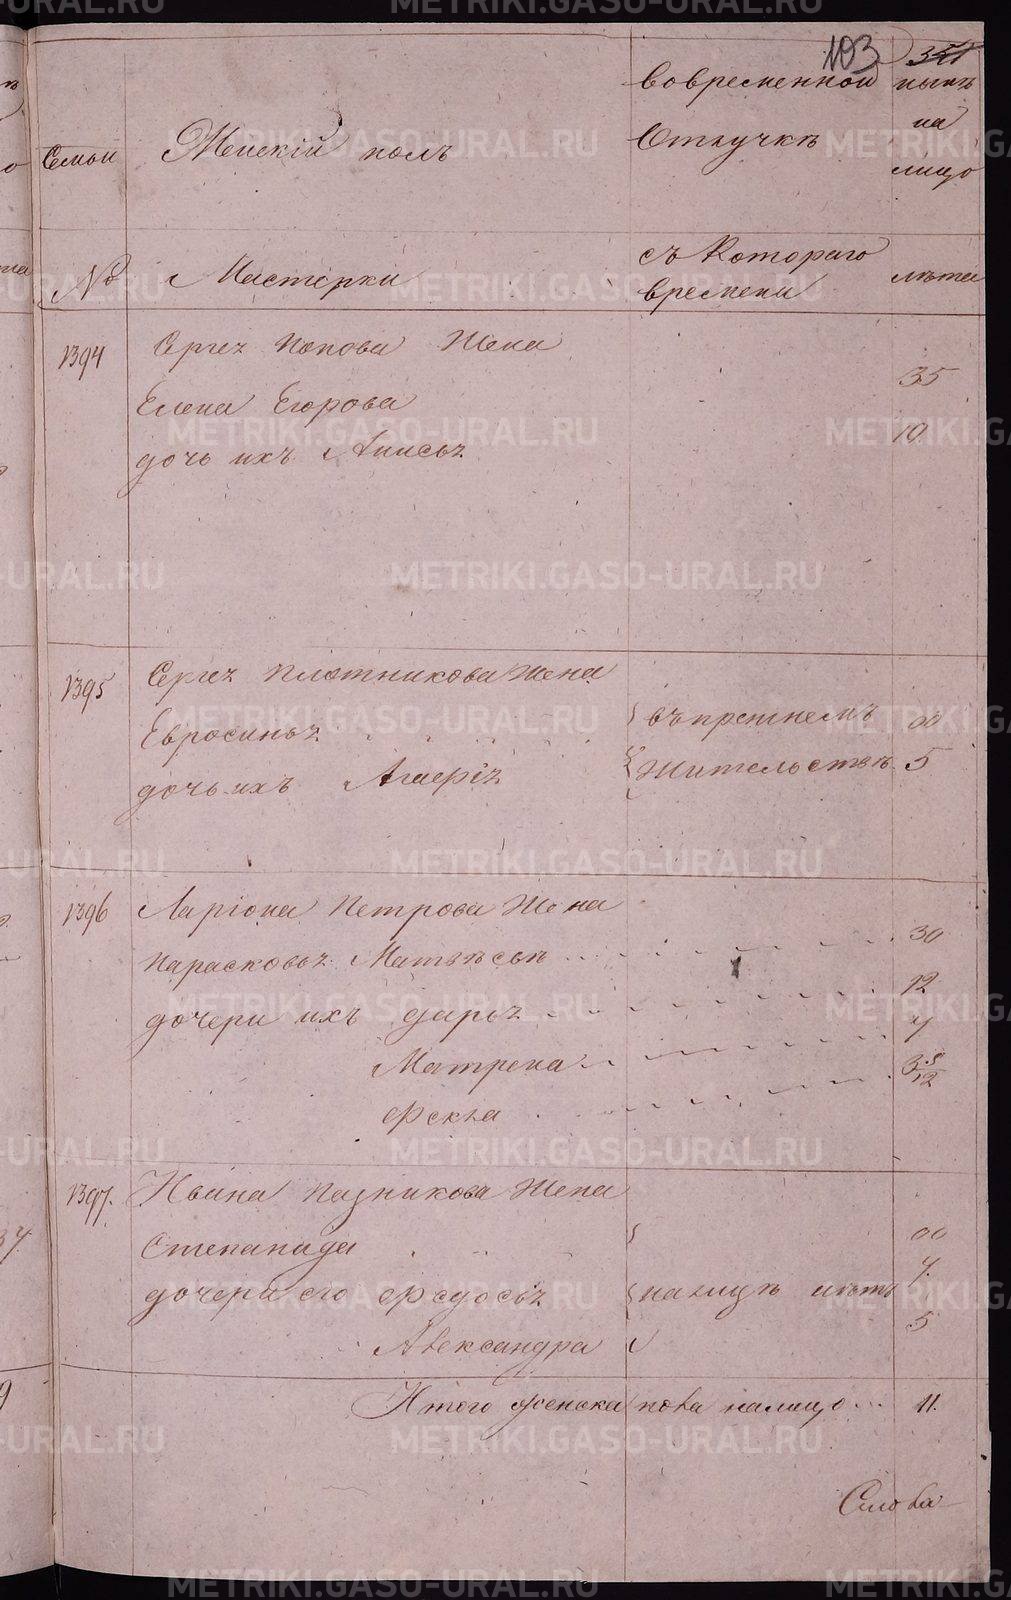 103
351
Семьи
Женскій полъ
во временной
Отлучкѣ
нынѣ
на
лицо
№
Мастерки
съ Котораго
времени
лѣта
1394
Сергея Попова Жена
Елена Егорова
35
дочь ихъ Анисья
10
1395
Сергея Плотникова Жена
Евросинья
въ прежнемъ
00
дочь ихъ
Жительствѣ
5
1396
Ларіона Петрова Жена
Парасковья Матвѣева
30
дочери ихъ Дарья
12
Матрена
7
Фекла
3 8/12
1397.
Ивана Пазникова Жена
Степанида
00
дочери его Федосья
налицѣ нѣтъ
7.
Александра
5
Итого женска пола налицо
11.
METRIKI.GASO-URAL.RU